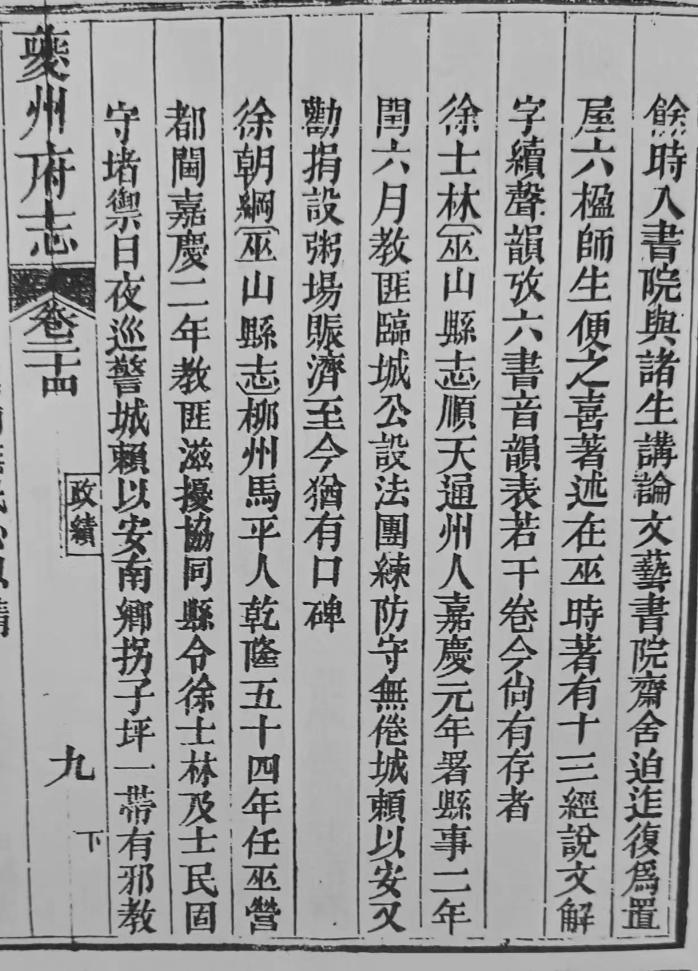 餘時入書院與諸生講論文藝書院齋舍迫迮復爲置
屋六楹師生便之喜著述在巫時著有十三經說文解
字續聲韻攷六書音韻表若干卷今尙有存者
徐士林（巫山縣志）順天通州人嘉慶元年署縣事二年
閏六月教匪臨城公設法團練防守無倦城賴以安又
勸捐設粥場賑濟至今猶有口碑
徐朝綱（巫山縣志）柳州馬平人乾隆五十四年任巫營
都閫嘉慶二年教匪滋擾協同縣令徐士林及士民固
守堵禦日夜巡警城賴以安南鄉拐子坪一帶有邪教
夔州府志
卷三十四
政績
九
下